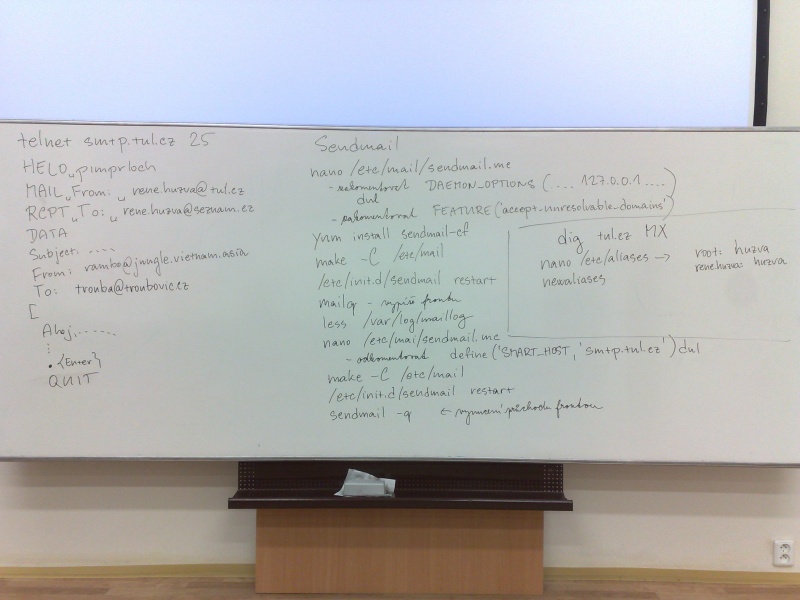 telnet smtp.tul.cz 25
HELO␣pimprlbch
MAIL␣From:␣rene.huzva@tul.cz
RCPT␣To:␣rene.huzva@seznam.cz
DATA
Subject: ....
From: rambo@jungle.vietnam.asia
To: trouba@troubovic.cz
[
Ahoj,.......
⋮
• {Enter}
QUIT
Sendmail
nano /etc/mail/sendmail.mc
- zakomentovat DAEMON_OPTIONS (.... 127.0.0.1 ....)
dnl
- zakomentovat FEATURE('accept-unresolvable-domains')
yum install sendmail-cf
make -C /etc/mail
/etc/init.d/sendmail restart
mailq - vypíše frontu
less /var/log/maillog
nano /etc/mai/sendmail.mc
- odkomentovat define('SMART_HOST, 'smtp.tul.cz') dnl
make -C /etc/mail
/etc/init.d/sendmail restart
sendmail -q ← vynucení průchodu frontou
dig tul.cz MX
nano /etc/aliases → root: huzva
rene.huzva: huzva
newaliases